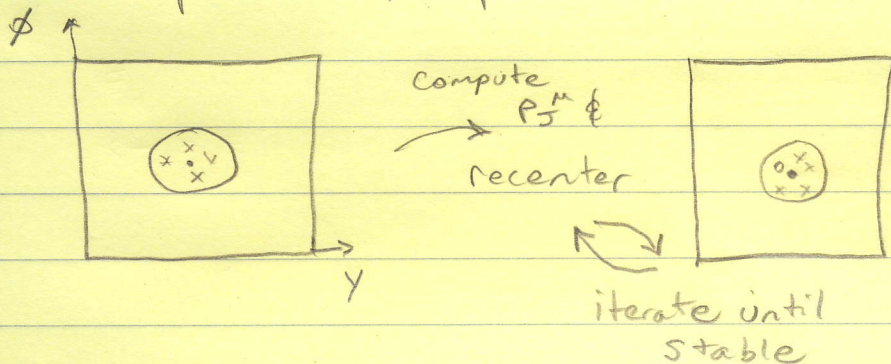 φ
compute
P_J^μ &
recenter
y
iterate until
stable